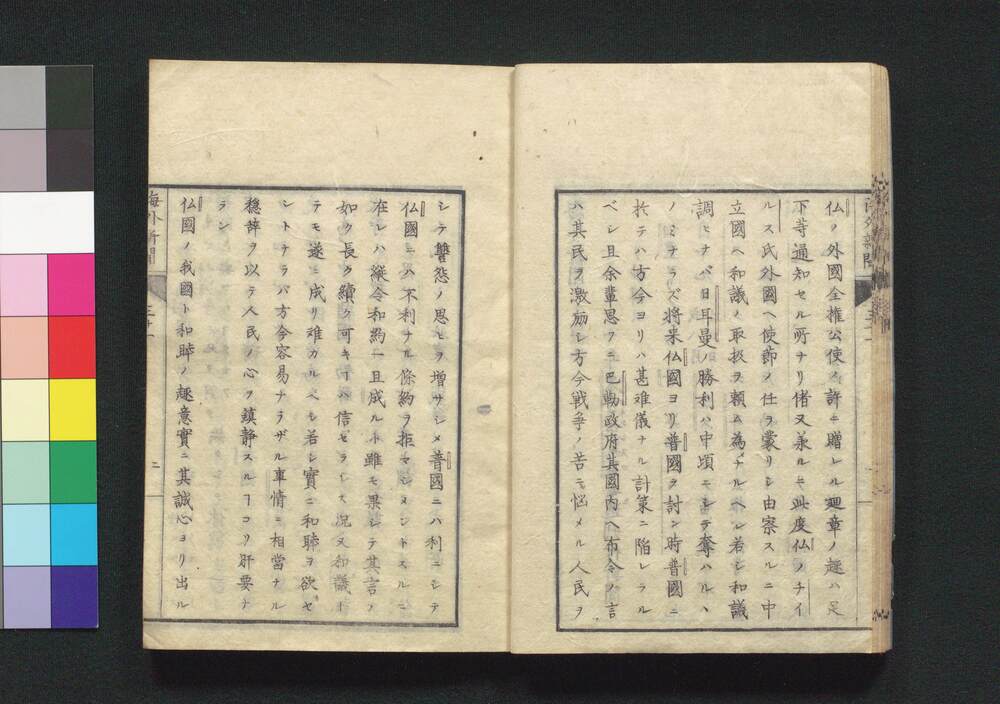 仏ノ外國全權公使ノ許ニ贈レル廻章ノ趣ハ足
下等通知セル所ナリ偖又兼ルモ此度仏ノチイ
ルス氏外國ヘ使節ノ任ヲ蒙リシ由察スルニ中
立國ヘ和議ノ取扱ヲ頼ム為メナルベシ若シ和議
調ヒナバ日耳曼ノ勝利ハ中頃ニシテ奪ハルヽ
ノミナラズ将来仏國ヨリ普國ヲ討ン時普國ニ
扵テハ方今ヨリハ甚难儀ナル計策ニ陥レラル
ベシ且余輩思フニ巴勒政府其國内ヘ布令ノ言
ハ其民ヲ激励シ方今戦争ノ苦ニ悩メル人民ヲ
シテ讐怨ノ思ヒヲ増サシメ普國ニハ利ニシテ
仏國ニハ不利ナル條約ヲ拒マシメントスルニ
在レハ縱令和約一旦成ルト雖モ果シテ其言ノ
如ク長ク續ク可キヿハ信セラレス况又和議ト
テモ遂ニ成リ难カルベシ若シ實ニ和睦ヲ欲セ
ントテラバ方今容易ナラザル事情ニ相當ナル
穏辞ヲ以テ人民ノ心ヲ鎮静スルヿコソ肝要ナ
ラン
仏國ノ我國ト和睦ノ趣意實ニ其誠心ヨリ出ル
海外新聞
二